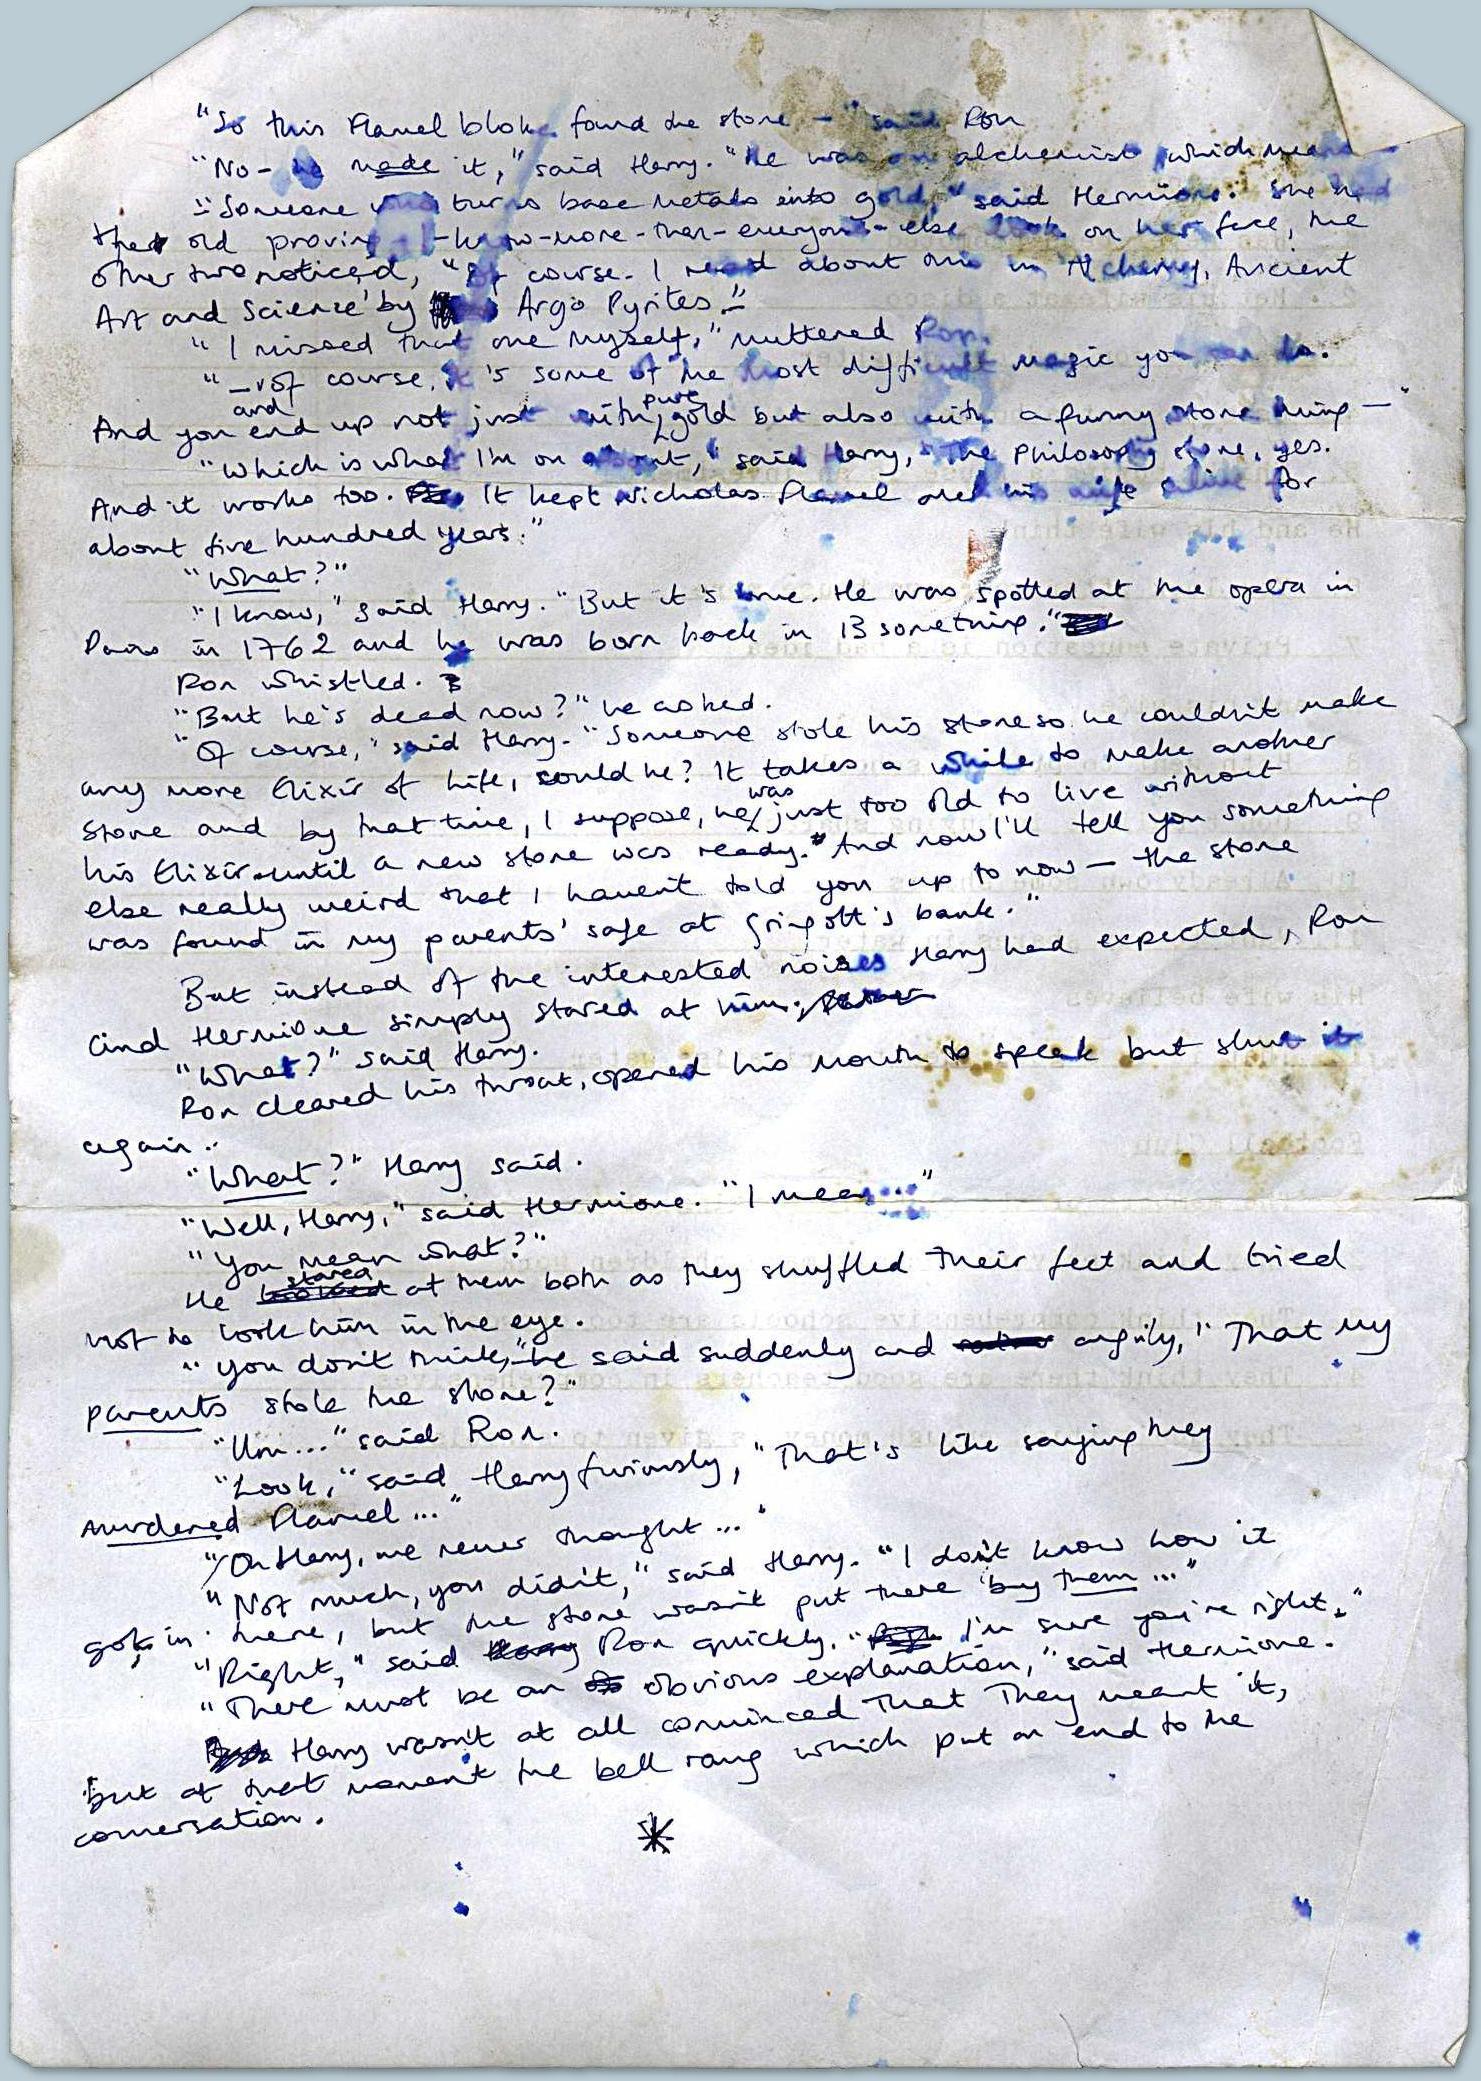 "So this Flamel bloke found the stone —" said Ron
"No - he made it," said Harry. "He was an alchemist, which means
"Someone who turns base metals into gold," said Hermione. She had
that old -know-more-than-everyone-else look on her face, the
other two noticed, "Of course. I read about this in 'Alchemy, Ancient
Art and Science' by Argo Pyrites."
"I missed that one myself," muttered Ron.
"— of course, it's some of the most difficult magic you can do.
And you and end up not just with pure gold but also with a funny stone thing —"
"Which is what I'm on about," said Harry, "The Philosophy stone, yes.
And it works too. It kept Nicholas Flamel and his wife alive for
about five hundred years."
"What?"
"I know," said Harry. "But it's true. He was spotted at the opera in
Paris in 1762 and he was born back in 13 something."
Ron whistled.
"But he's dead now?" he asked.
"Of course," said Harry. "Someone stole his stone so he couldn't make
any more Elixir of Life, could he? It takes a while to make another
stone and by that time, I suppose, he was just too old to live without
his Elixir until a new stone was ready. And now I'll tell you something
else really weird that I haven't told you up to now — the stone
was found in my parents' safe at Gringott's bank."
But instead of the interested noises Harry had expected, Ron
and Hermione simply stared at him.
"What?" said Harry.
Ron cleared his throat, opened his mouth to speak but shut it
again.
"What?" Harry said.
"Well, Harry," said Hermione. "I mean ..."
"You mean what?"
He stared at them both as they shuffled their feet and tried
not to look him in the eye.
"You don't think," he said suddenly and angrily, "That my
parents stole the stone?"
"Um ..." said Ron.
"Look," said Harry furiously, "That's like saying they
murdered Flamel ..."
"Oh Harry, we never thought ..."
"Not much, you didn't," said Harry. "I don't know how it
got in there, but the stone wasn't put there by them ..."
"Right," said Ron quickly. "I'm sure you're right."
"There must be an obvious explanation," said Hermione.
Harry wasn't at all convinced that they meant it,
but at that moment the bell rang which put an end to the
conversation.
*